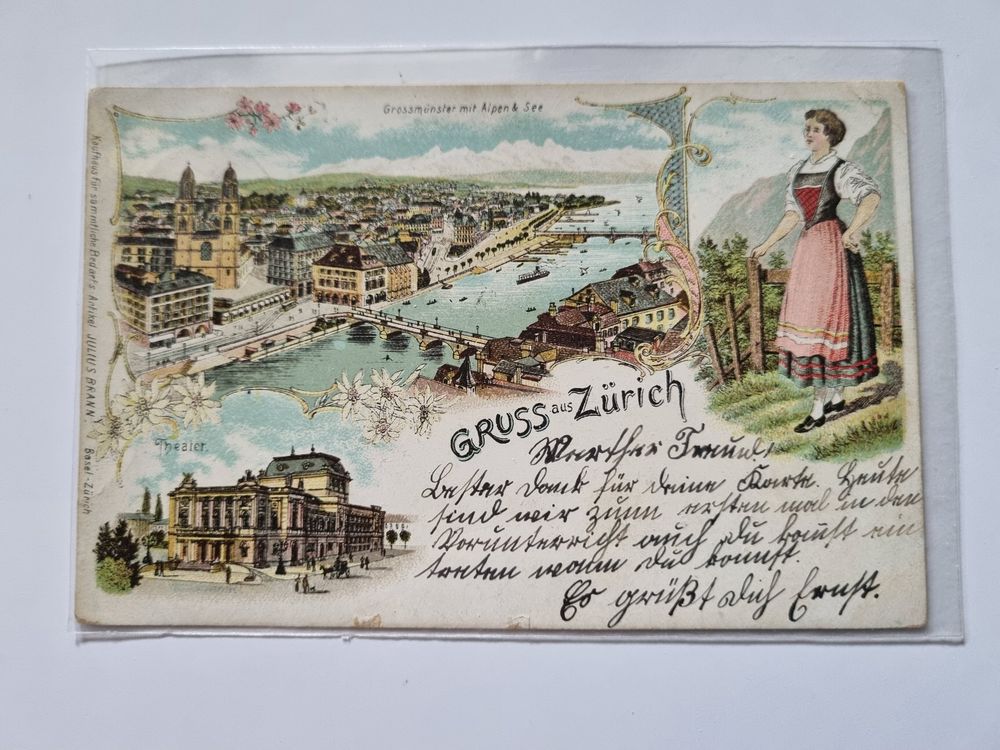 Grossmünster mit Alpen & See
Kaufhaus für sämmtliche Bedarfs-Artikel JULIUS BRANN Basel-Zürich
Theater.
GRUSS aus Zürich
Werther Freund!
Bester Dank für deine Karte. Heute
sind wir zum ersten mal in den
Vorunterricht auch du kannst ein
treten wann du kommst.
Es grüßt dich Ernst.